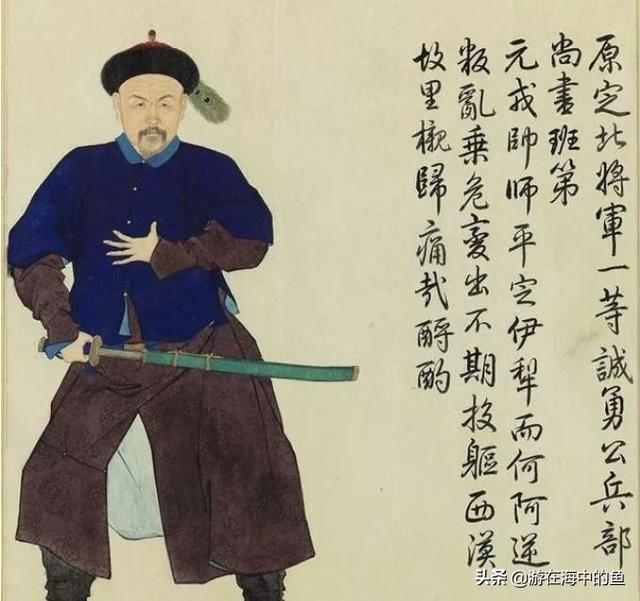 原定北將軍一等誠勇公兵部
尚書班第
元戎帥師平定伊犁而何阿逆
叛亂乗危變出不期投軀西漠
故里櫬歸痛㢤酹酌
头条 @游在海中的鱼